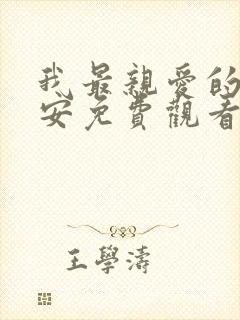 我最親愛的
安免費觀看
王學濤